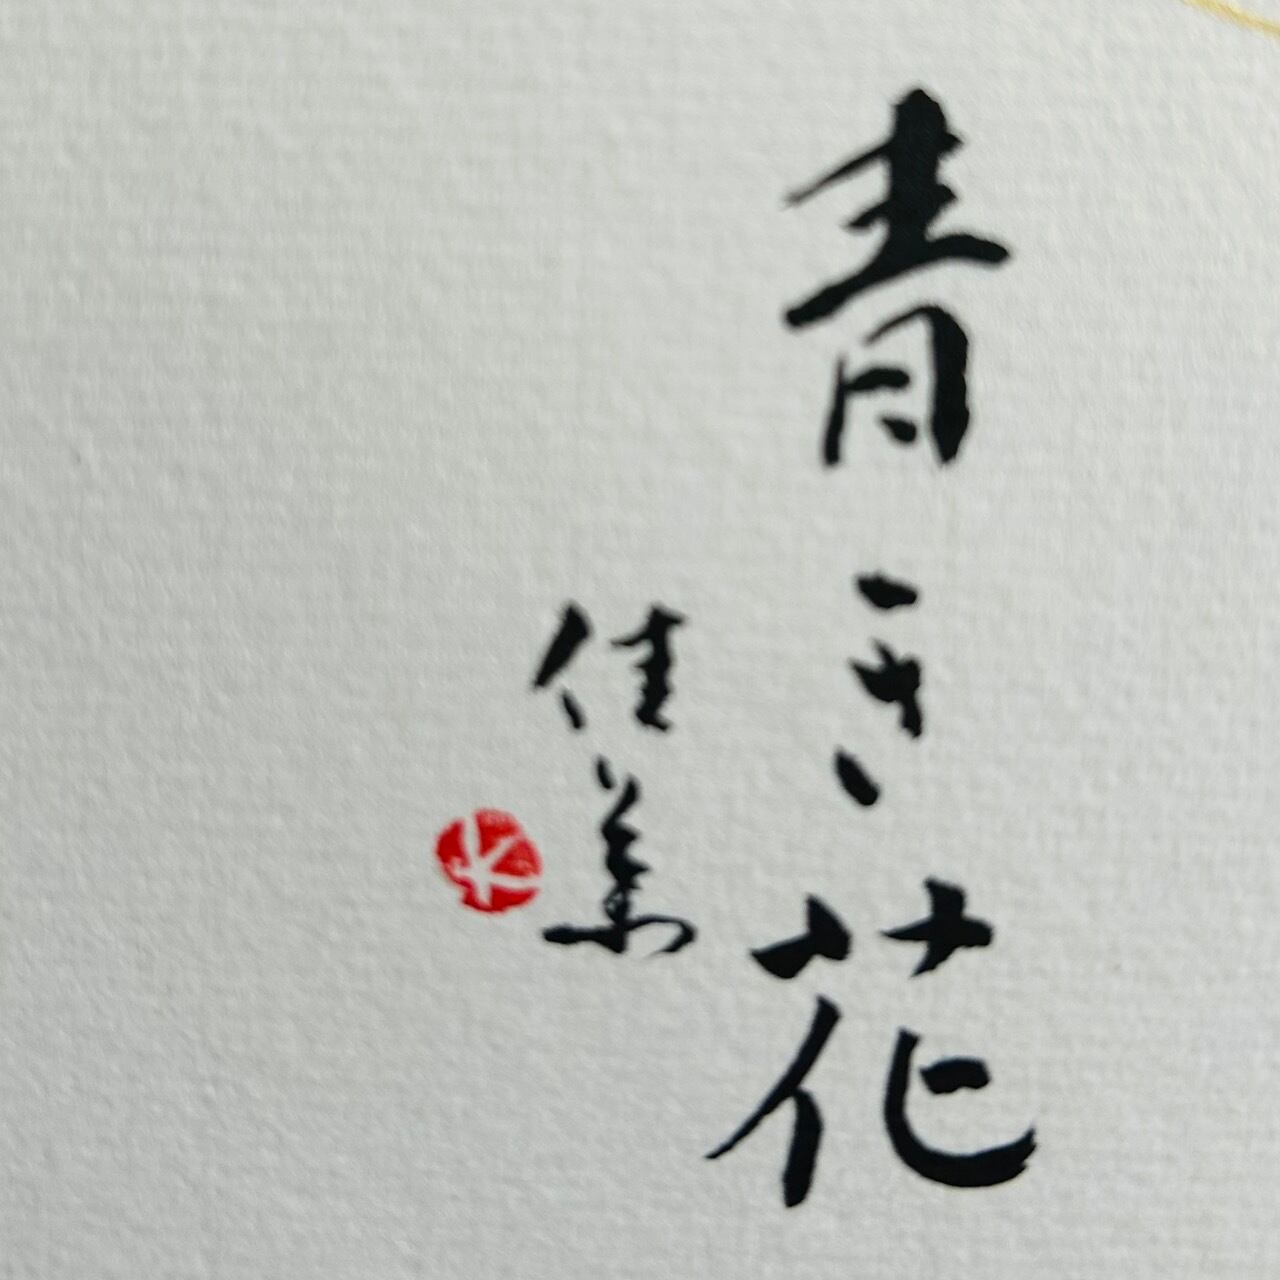 青き花
佳美
K